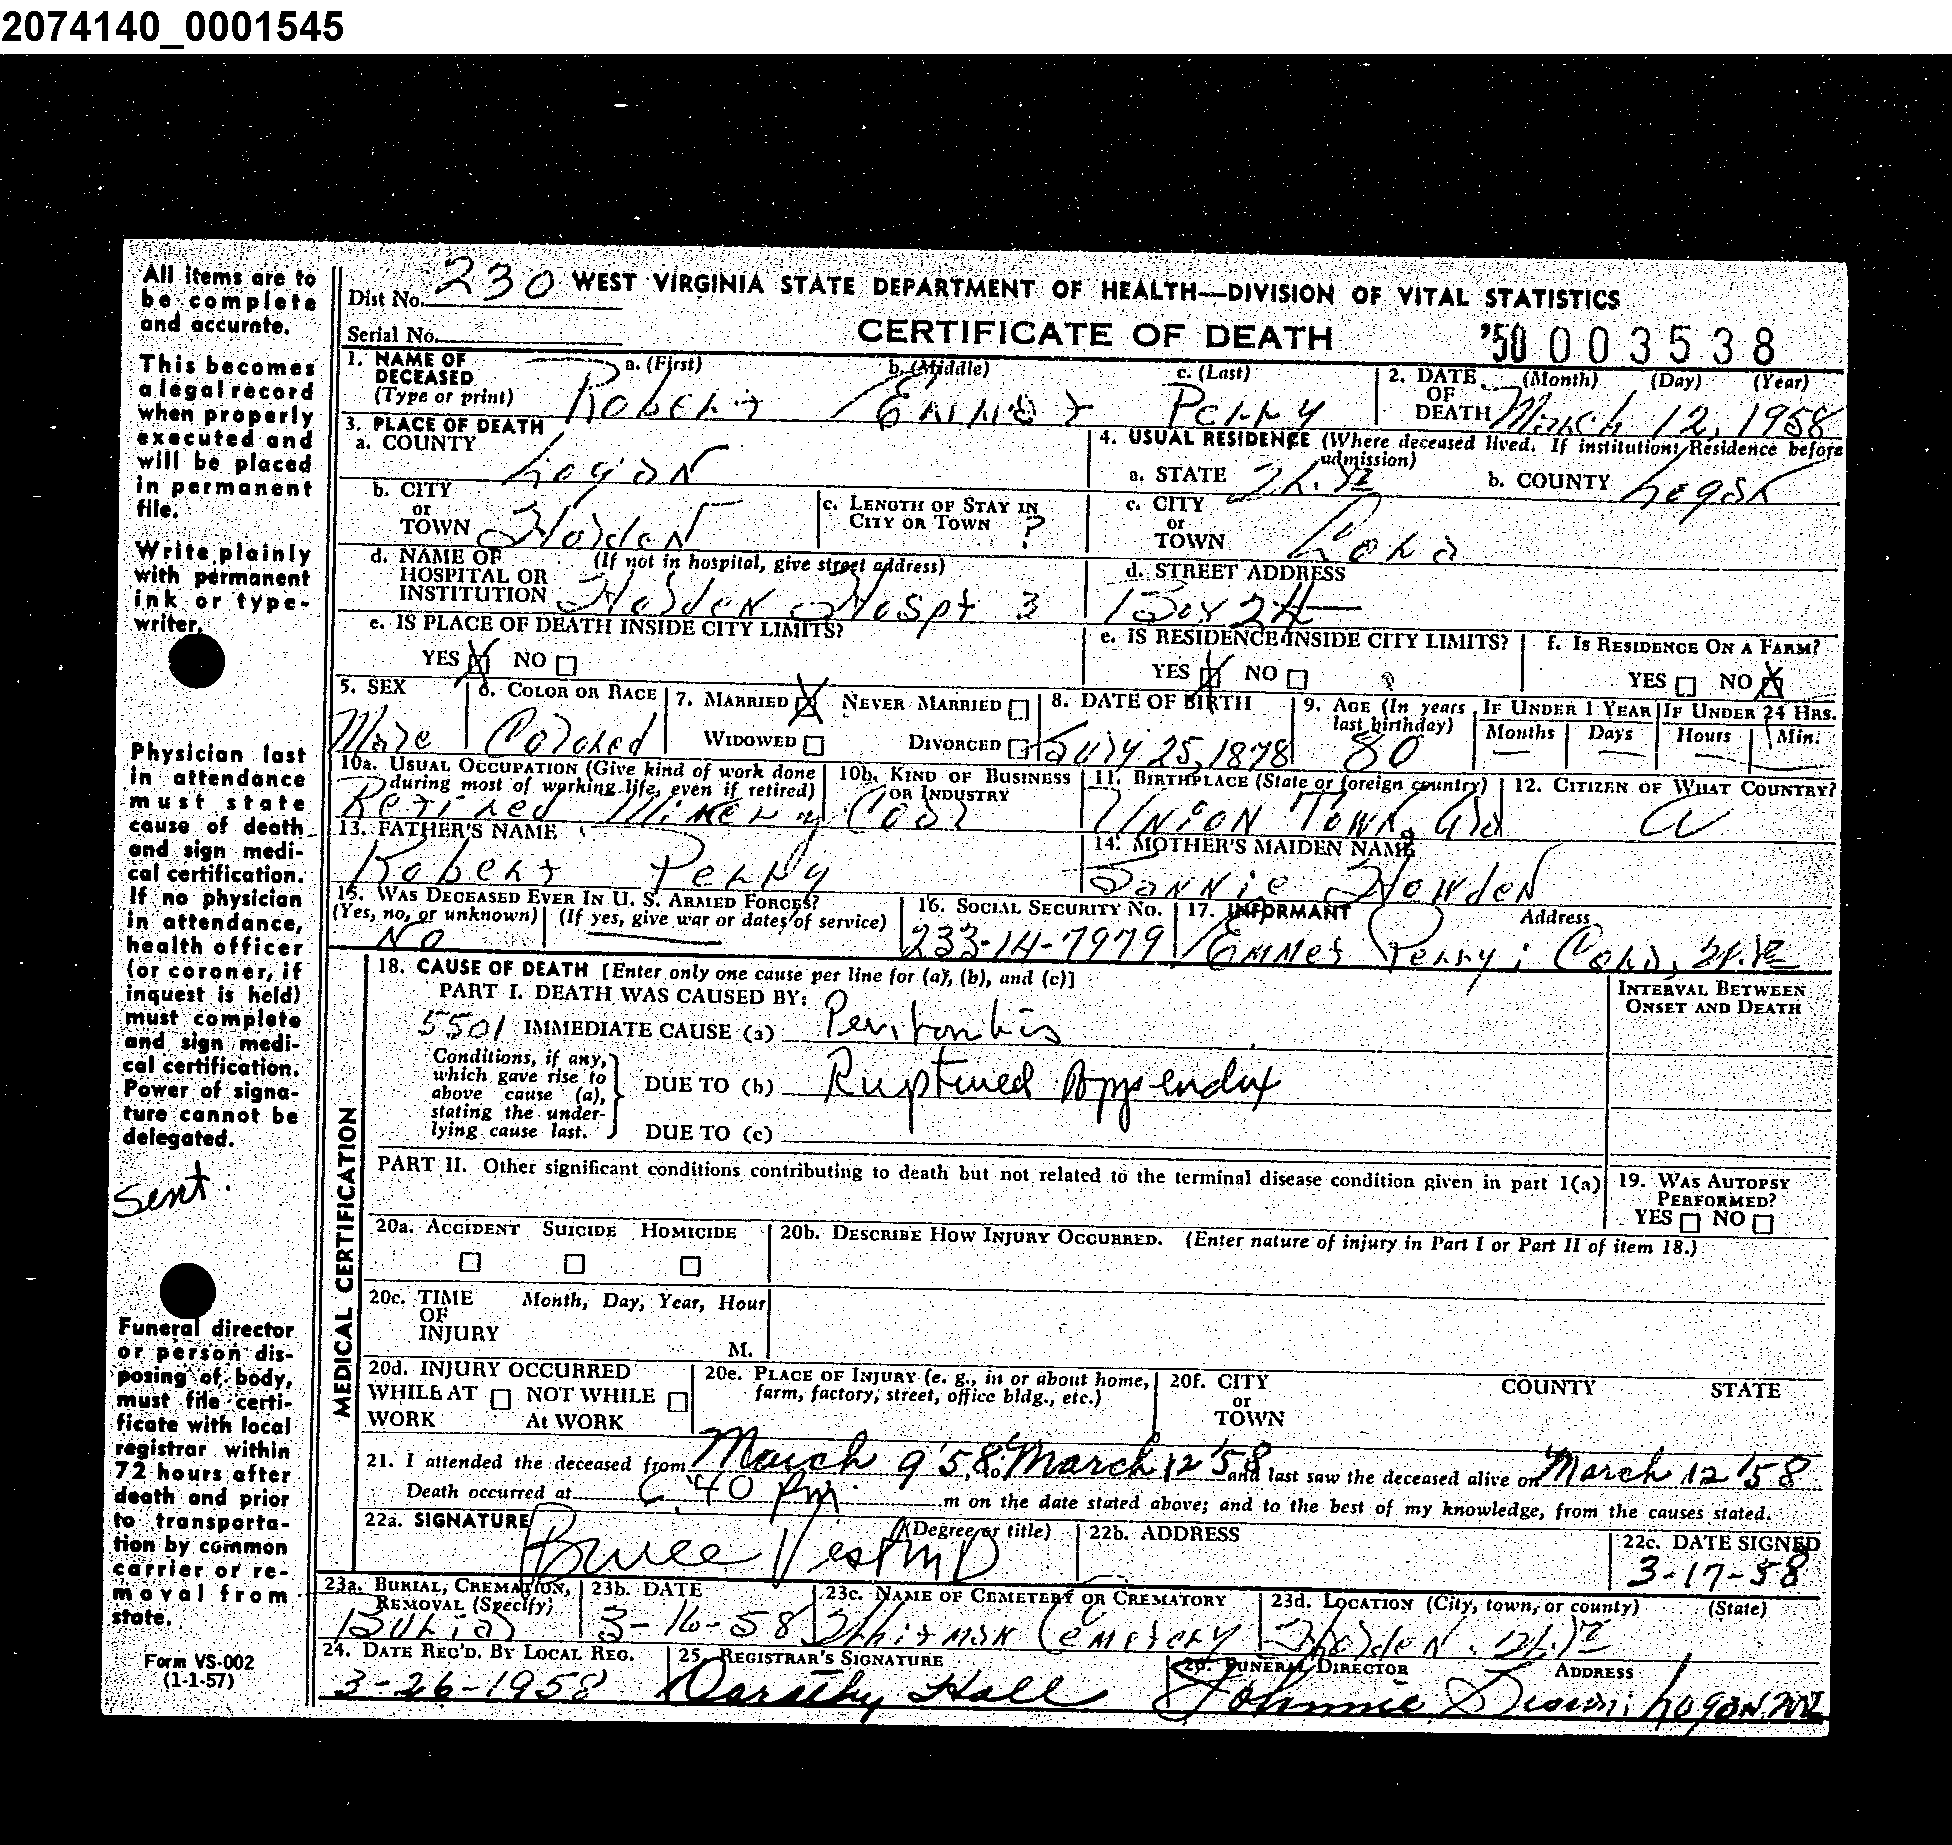 2074140_0001545
All items are to
be complete
and accurate.
This becomes
a legal record
when properly
executed and
will be placed
in permanent
file.
Write plainly
with permanent
ink or type-
writer.
Physician last
in attendance
must state
cause of death
and sign medi-
cal certification.
If no physician
in attendance,
health officer
(or coroner, if
inquest is held)
must complete
and sign medi-
cal certification.
Power of signa-
ture cannot be
delegated.
Sent.
Funeral director
or person dis-
posing of body,
must file certi-
ficate with local
registrar within
72 hours after
death and prior
to transporta-
tion by common
carrier or re-
moval from
state.
Form VS-002
(1-1-57)
Dist No. 230 WEST VIRGINIA STATE DEPARTMENT OF HEALTH—DIVISION OF VITAL STATISTICS
Serial No. CERTIFICATE OF DEATH '58 003538
1. NAME OF DECEASED (Type or print) a. (First) b. (Middle) c. (Last) 2. DATE OF DEATH (Month) (Day) (Year)
Robert Emmet Perry March 12, 1958
3. PLACE OF DEATH 4. USUAL RESIDENCE (Where deceased lived. If institution: Residence before admission)
a. COUNTY Logan a. STATE W.Va b. COUNTY Logan
b. CITY or TOWN Holden c. LENGTH OF STAY IN CITY OR TOWN ? c. CITY or TOWN Cora
d. NAME OF HOSPITAL OR INSTITUTION (If not in hospital, give street address) Holden Hospt 3 d. STREET ADDRESS Box 24
e. IS PLACE OF DEATH INSIDE CITY LIMITS? e. IS RESIDENCE INSIDE CITY LIMITS? f. IS RESIDENCE ON A FARM?
YES X NO YES X NO YES NO X
5. SEX 6. COLOR OR RACE 7. MARRIED X NEVER MARRIED 8. DATE OF BIRTH 9. AGE (In years last birthday) IF UNDER 1 YEAR IF UNDER 24 HRS.
Male Colored WIDOWED DIVORCED July 25, 1878 80 Months Days Hours Min.
10a. USUAL OCCUPATION (Give kind of work done during most of working life, even if retired) 10b. KIND OF BUSINESS OR INDUSTRY 11. BIRTHPLACE (State or foreign country) 12. CITIZEN OF WHAT COUNTRY?
Retired Coal Union Town, Ala
13. FATHER'S NAME 14. MOTHER'S MAIDEN NAME
Robert Perry Fannie Howden
15. WAS DECEASED EVER IN U. S. ARMED FORCES? 16. SOCIAL SECURITY NO. 17. INFORMANT Address
(Yes, no, or unknown) (If yes, give war or dates of service)
No 233-14-7979 Emmet Perry; Cora, W.Va
MEDICAL CERTIFICATION
18. CAUSE OF DEATH [Enter only one cause per line for (a), (b), and (c)] INTERVAL BETWEEN ONSET AND DEATH
PART I. DEATH WAS CAUSED BY:
5501 IMMEDIATE CAUSE (a) Peritonitis
Conditions, if any, which gave rise to above cause (a), stating the underlying cause last. DUE TO (b) Ruptured Appendix
DUE TO (c)
PART II. Other significant conditions contributing to death but not related to the terminal disease condition given in part I(a) 19. WAS AUTOPSY PERFORMED?
YES NO
20a. ACCIDENT SUICIDE HOMICIDE 20b. DESCRIBE HOW INJURY OCCURRED. (Enter nature of injury in Part I or Part II of item 18.)
20c. TIME OF INJURY Month, Day, Year, Hour
M.
20d. INJURY OCCURRED 20e. PLACE OF INJURY (e. g., in or about home, farm, factory, street, office bldg., etc.) 20f. CITY or TOWN COUNTY STATE
WHILE AT WORK NOT WHILE At WORK
21. I attended the deceased from March 9 '58 to March 12 '58 and last saw the deceased alive on March 12 '58
Death occurred at 6:40 Pm. m on the date stated above; and to the best of my knowledge, from the causes stated.
22a. SIGNATURE (Degree or title) 22b. ADDRESS 22c. DATE SIGNED
Bruce Vest MD 3-17-58
23a. BURIAL, CREMATION, REMOVAL (Specify) 23b. DATE 23c. NAME OF CEMETERY OR CREMATORY 23d. LOCATION (City, town, or county) (State)
Burial 3-16-58 Whitman Cemetery Holden. W.Va
24. DATE REC'D. BY LOCAL REG. 25. REGISTRAR'S SIGNATURE 26. FUNERAL DIRECTOR ADDRESS
3-26-1958 Dorothy Hall Johnnie Logan W.Va